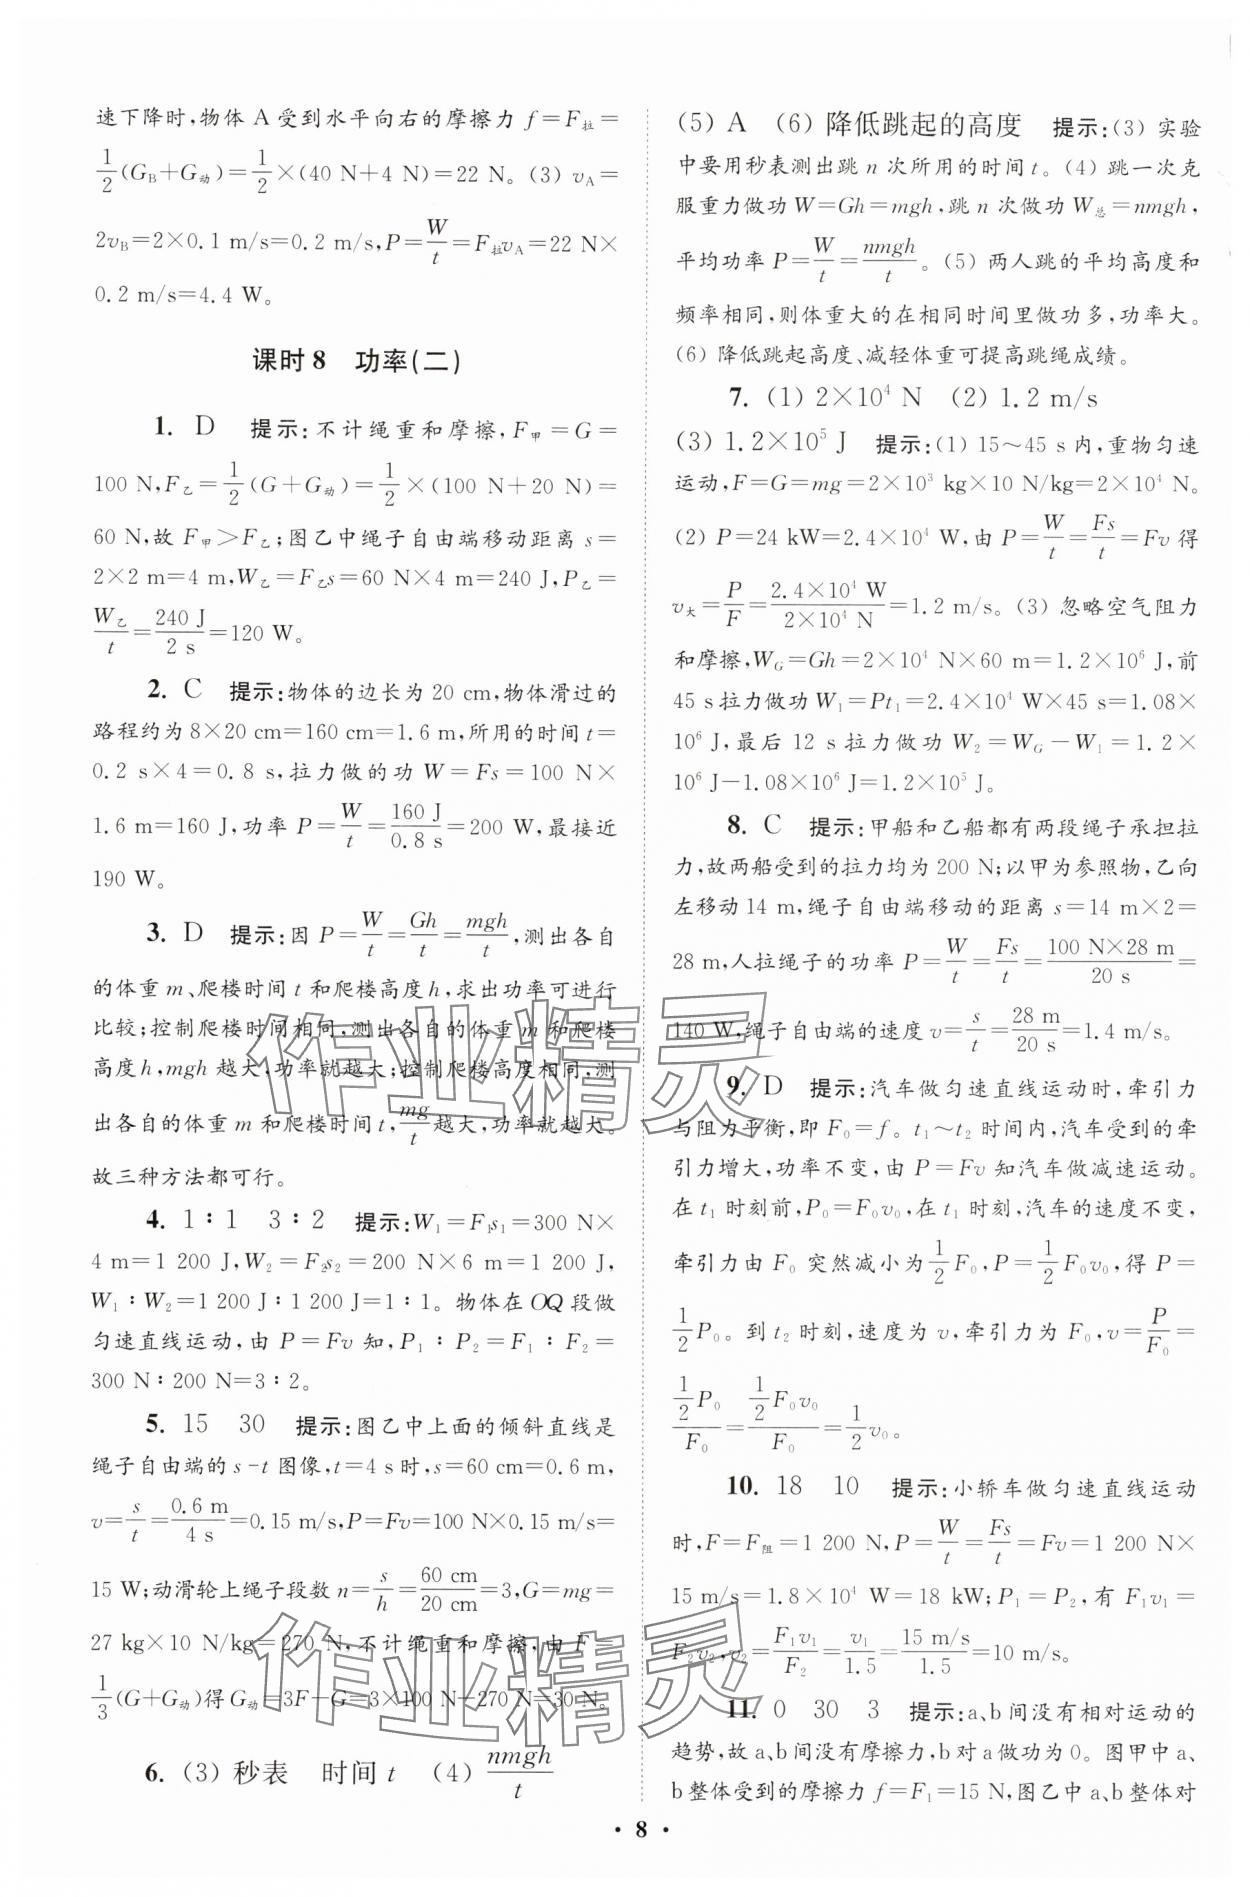 速下降时,物体 A 受到水平向右的摩擦力 f=F拉=
1/2(GB+G动)=1/2×(40 N+4 N)=22 N。(3) vA=
2vB=2×0.1 m/s=0.2 m/s,P=W/t=F拉vA=22 N×
0.2 m/s=4.4 W。
课时8 功率(二)
1. D 提示:不计绳重和摩擦,F甲=G=
100 N,F乙=1/2(G+G动)=1/2×(100 N+20 N)=
60 N,故 F甲>F乙;图乙中绳子自由端移动距离 s=
2×2 m=4 m,W乙=F乙s=60 N×4 m=240 J,P乙=
W乙/t=240 J/2 s=120 W。
2. C 提示:物体的边长为 20 cm,物体滑过的
路程约为 8×20 cm=160 cm=1.6 m,所用的时间 t=
0.2 s×4=0.8 s,拉力做的功 W=Fs=100 N×
1.6 m=160 J,功率 P=W/t=160 J/0.8 s=200 W,最接近
190 W。
3. D 提示:因 P=W/t=Gh/t=mgh/t,测出各自
的体重 m、爬楼时间 t 和爬楼高度 h,求出功率可进行
比较;控制爬楼时间相同,测出各自的体重 m 和爬楼
高度 h,mgh 越大,功率就越大;控制爬楼高度相同,测
出各自的体重 m 和爬楼时间 t,mg/t越大,功率就越大。
故三种方法都可行。
4. 1∶1 3∶2 提示:W1=F1s1=300 N×
4 m=1 200 J,W2=F2s2=200 N×6 m=1 200 J,
W1∶W2=1 200 J∶1 200 J=1∶1。物体在 OQ 段做
匀速直线运动,由 P=Fv 知,P1∶P2=F1∶F2=
300 N∶200 N=3∶2。
5. 15 30 提示:图乙中上面的倾斜直线是
绳子自由端的 s-t 图像,t=4 s 时,s=60 cm=0.6 m,
v=s/t=0.6 m/4 s=0.15 m/s,P=Fv=100 N×0.15 m/s=
15 W;动滑轮上绳子段数 n=s/h=60 cm/20 cm=3,G=mg=
27 kg×10 N/kg=270 N,不计绳重和摩擦,由 F=
1/3(G+G动)得 G动=3F-G=3×100 N-270 N=30 N。
6. (3) 秒表 时间 t (4) nmgh/t
(5) A (6) 降低跳起的高度 提示:(3) 实验
中要用秒表测出跳 n 次所用的时间 t。(4) 跳一次克
服重力做功 W=Gh=mgh,跳 n 次做功 W总=nmgh,
平均功率 P=W/t=nmgh/t。(5) 两人跳的平均高度和
频率相同,则体重大的在相同时间里做功多,功率大。
(6) 降低跳起高度、减轻体重可提高跳绳成绩。
7. (1) 2×10⁴ N (2) 1.2 m/s
(3) 1.2×10⁵ J 提示:(1) 15~45 s 内,重物匀速
运动,F=G=mg=2×10³ kg×10 N/kg=2×10⁴ N。
(2) P=24 kW=2.4×10⁴ W,由 P=W/t=Fs/t=Fv 得
v大=P/F=2.4×10⁴ W/2×10⁴ N=1.2 m/s。(3) 忽略空气阻力
和摩擦,WG=Gh=2×10⁴ N×60 m=1.2×10⁶ J,前
45 s 拉力做功 W1=Pt1=2.4×10⁴ W×45 s=1.08×
10⁶ J,最后 12 s 拉力做功 W2=WG-W1=1.2×
10⁶ J-1.08×10⁶ J=1.2×10⁵ J。
8. C 提示:甲船和乙船都有两段绳子承担拉
力,故两船受到的拉力均为 200 N;以甲为参照物,乙向
左移动 14 m,绳子自由端移动的距离 s=14 m×2=
28 m,人拉绳子的功率 P=W/t=Fs/t=100 N×28 m/20 s=
140 W,绳子自由端的速度 v=s/t=28 m/20 s=1.4 m/s。
9. D 提示:汽车做匀速直线运动时,牵引力
与阻力平衡,即 F0=f。t1~t2 时间内,汽车受到的牵
引力增大,功率不变,由 P=Fv 知汽车做减速运动。
在 t1 时刻前,P0=F0v0,在 t1 时刻,汽车的速度不变,
牵引力由 F0 突然减小为1/2F0,P=1/2F0v0,得 P=
1/2P0。到 t2 时刻,速度为 v,牵引力为 F0,v=P/F0=
1/2P0/F0=1/2F0v0/F0=1/2v0。
10. 18 10 提示:小轿车做匀速直线运动
时,F=F阻=1 200 N,P=W/t=Fs/t=Fv=1 200 N×
15 m/s=1.8×10⁴ W=18 kW;P1=P2,有 F1v1=
F2v2,v2=F1v1/F2=v1/1.5=15 m/s/1.5=10 m/s。
11. 0 30 3 提示:a、b间没有相对运动的
趋势,故 a、b间没有摩擦力,b 对 a 做功为 0。图甲中 a、
b整体受到的摩擦力 f=F1=15 N,图乙中 a、b 整体对
作业精灵
作业精灵
• 8 •